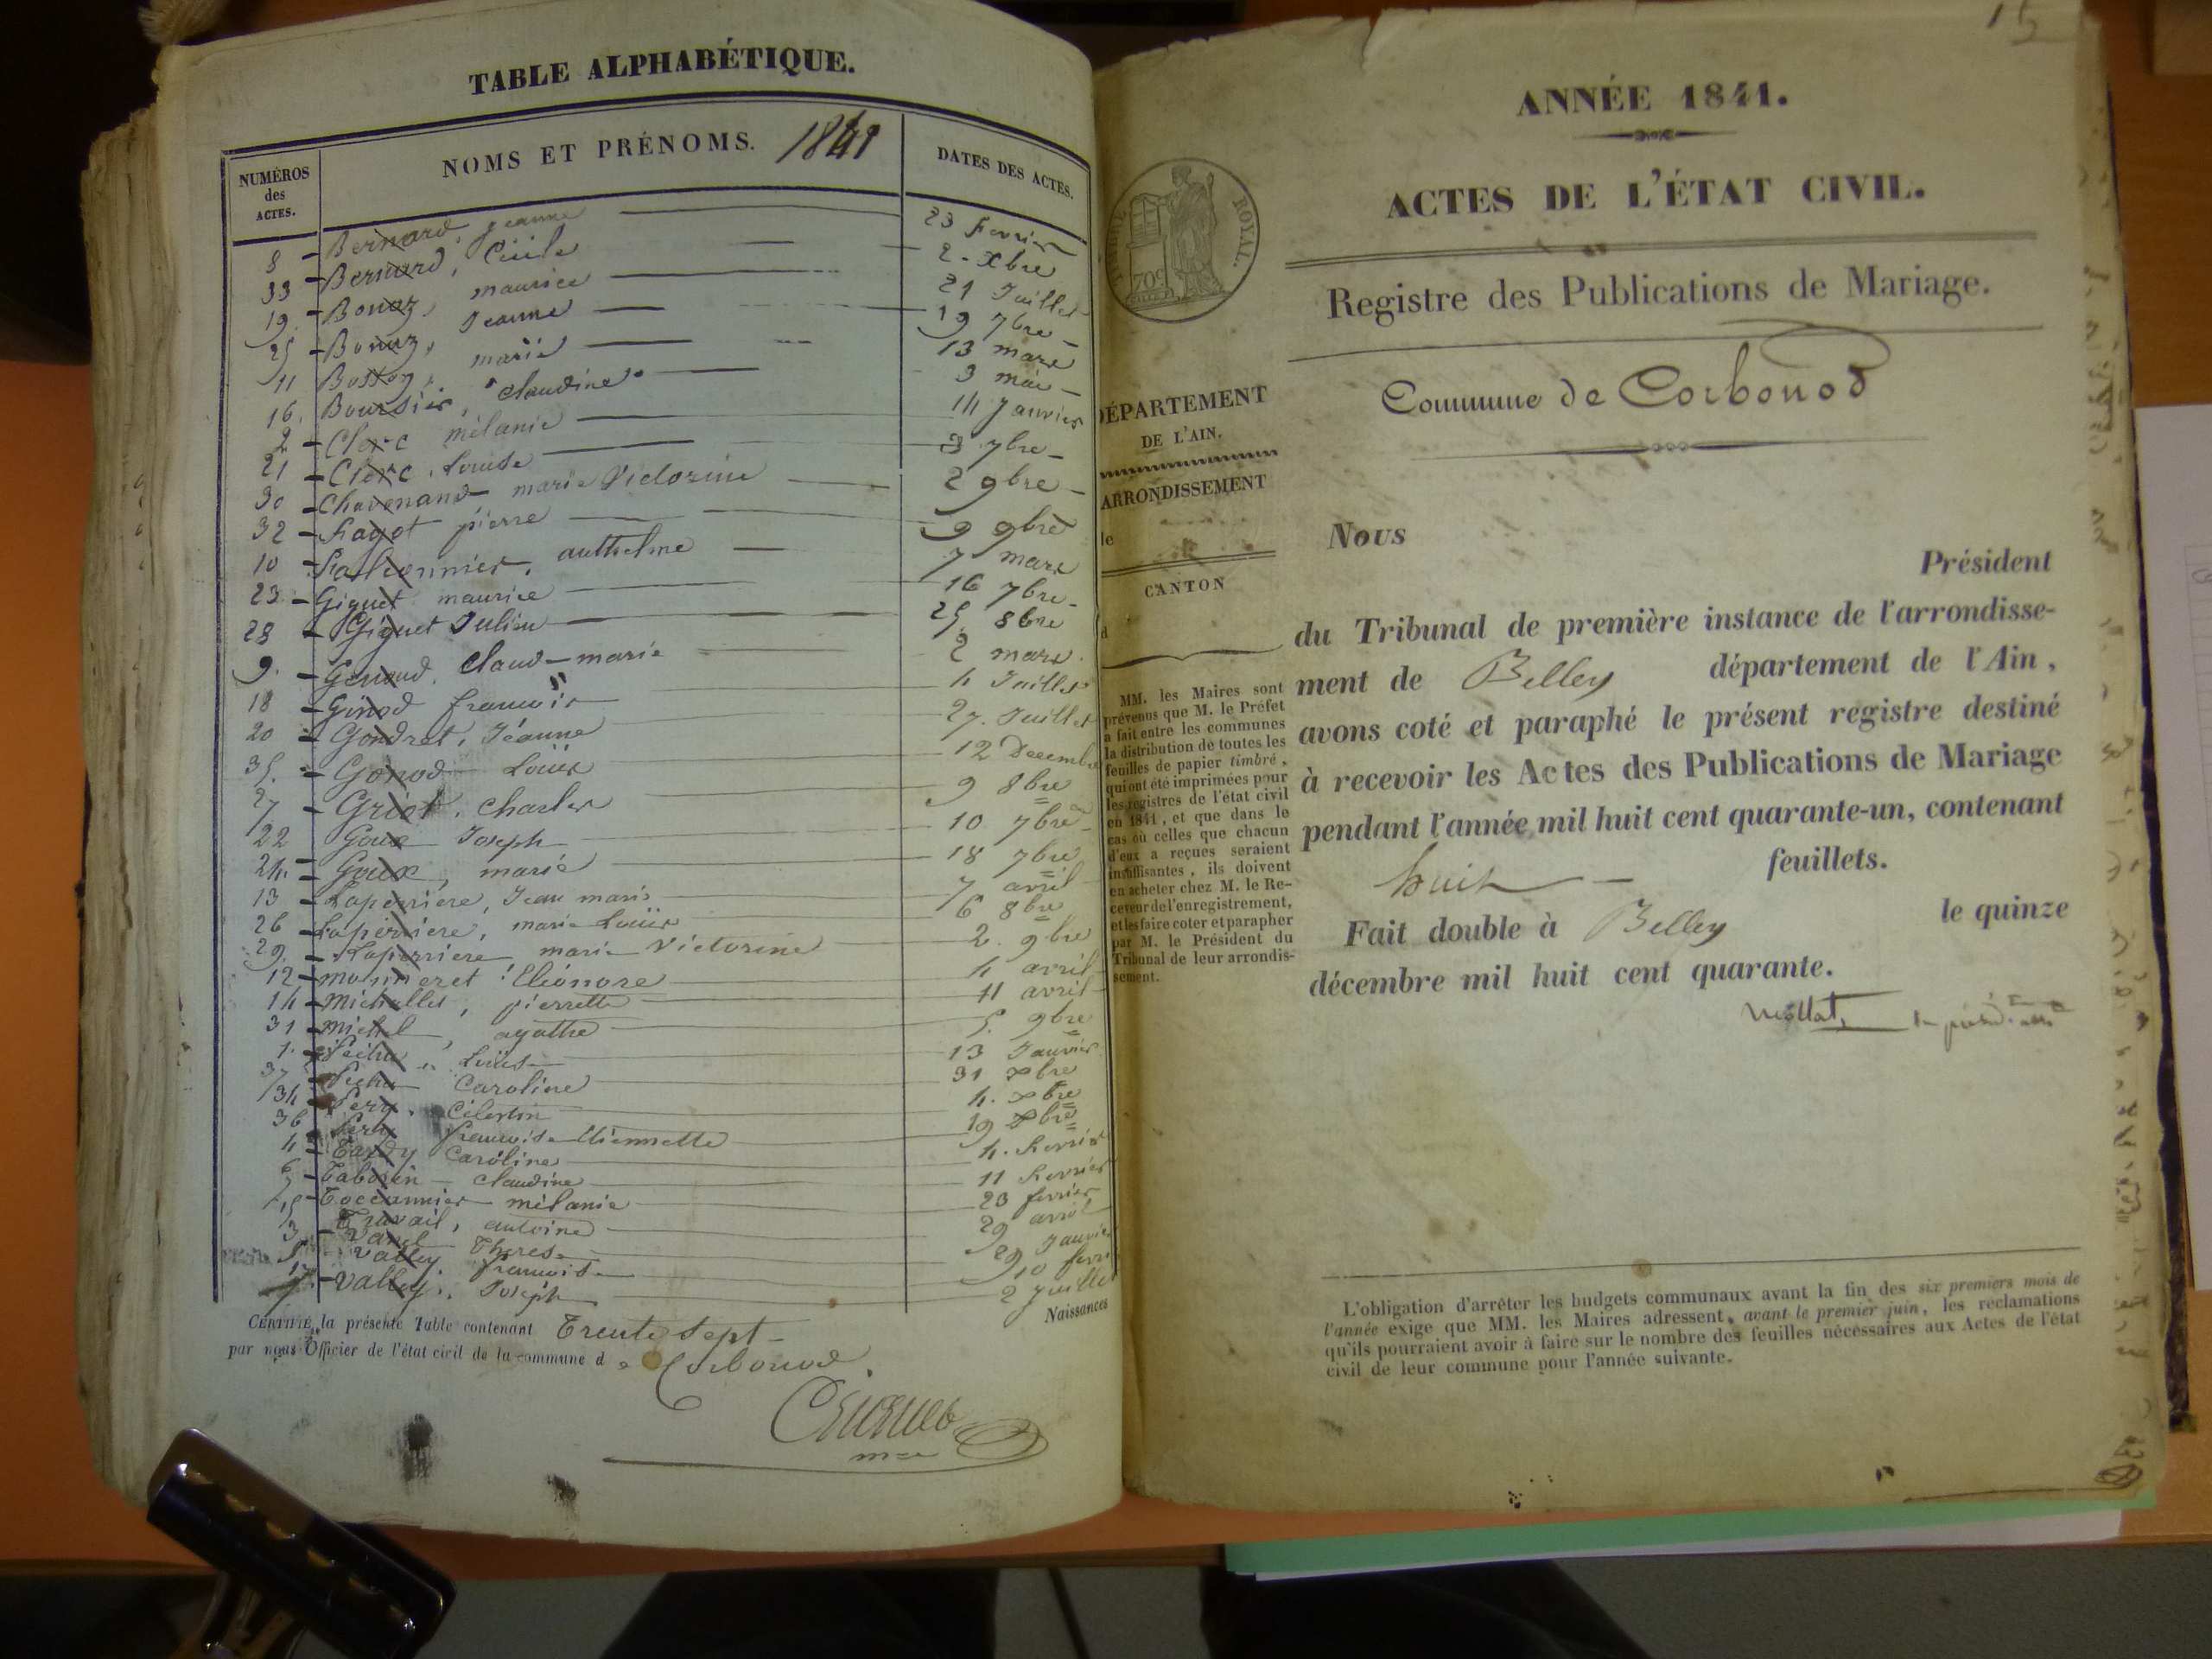 TABLE ALPHABÉTIQUE.
NUMÉROS des ACTES.
NOMS ET PRÉNOMS. 1841
DATES DES ACTES.
8 - Bernard, jeanne 23 fevrier
33 - Bernard, Cécile 2 - Xbre
19. - Bonaz, maurice 21 Juillet
25 - Bonaz, Jeanne 19 7bre -
11 Bossoz, marie 13 mars
16. Boursier, claudine 3 mai -
2 - Clerc mélanie 14 Janvier
21 - Clerc, Louise 3 7bre -
30 - Chavanand marie Victorine 2 9bre -
32 - Fagot pierre 9 9bre
10 - anthelme 7 mars
23 - Giguet maurice 16 7bre -
28 - Giguet Julien 25 8bre
9. - Genoud, Claud-marie 2 mars.
18 - Ginod francois 4 Juillet
20 - Gondret, Jéanne 27. Juillet
35. - Gonod Louis 12 Decemb
27 - Griot, charles 9 8bre
22 Goux Joseph 10 7bre -
24. - Goux, marie 18 7bre
13 - Laperriere, Jean marie 7 avril
26 - Laperriere, marie Louis 6 8bre
29. - Laperriere marie Victorine 2. 9bre
12 - monneret Eléonore 4 avril
14 - michellet, pierrette 11 avril
31 - michel, agathe 5. 9bre
1. - Louis 13 Janvier
37 - Caroline 31 xbre
34 - Pery. Célestin 4. xbre
36 - Pery francoise Etiennette 19 xbre
4 - Tardy Caroline 4. fevrier
6 - Taborin - claudine 11 fevrier
7 - Toccannier mélanie 23 fevrier
15 Travail, antoine 29 avril
3 - Vanel Therese 29 Janvie
5 - Valley. francoise 10 fevri
17 - Valley. Joseph 2 Juillet
Naissances
CERTIFIÉ, la présente Table contenant Trente sept -
par nous Officier de l'état civil de la commune de Corbonod.
15
ANNÉE 1841.
ACTES DE L'ÉTAT CIVIL.
Registre des Publications de Mariage.
Commune de Corbonod
TIMBRE ROYAL.
70c
DÉPARTEMENT
DE L'AIN.
ARRONDISSEMENT
de
CANTON
d
MM. les Maires sont
prévenus que M. le Préfet
a fait entre les communes
la distribution de toutes les
feuilles de papier timbré,
qui ont été imprimées pour
les registres de l'état civil
en 1841, et que dans le
cas où celles que chacun
d'eux a reçues seraient
insuffisantes, ils doivent
en acheter chez M. le Re-
ceveur de l'enregistrement,
et les faire coter et parapher
par M. le Président du
Tribunal de leur arrondis-
sement.
NOUS
Président
du Tribunal de première instance de l'arrondisse-
ment de Belley département de l'Ain,
avons coté et paraphé le présent registre destiné
à recevoir les Actes des Publications de Mariage
pendant l'année mil huit cent quarante-un, contenant
huit feuillets.
Fait double à Belley le quinze
décembre mil huit cent quarante.
L'obligation d'arrêter les budgets communaux avant la fin des six premiers mois de
l'année exige que MM. les Maires adressent, avant le premier juin, les réclamations
qu'ils pourraient avoir à faire sur le nombre des feuilles nécessaires aux Actes de l'état
civil de leur commune pour l'année suivante.